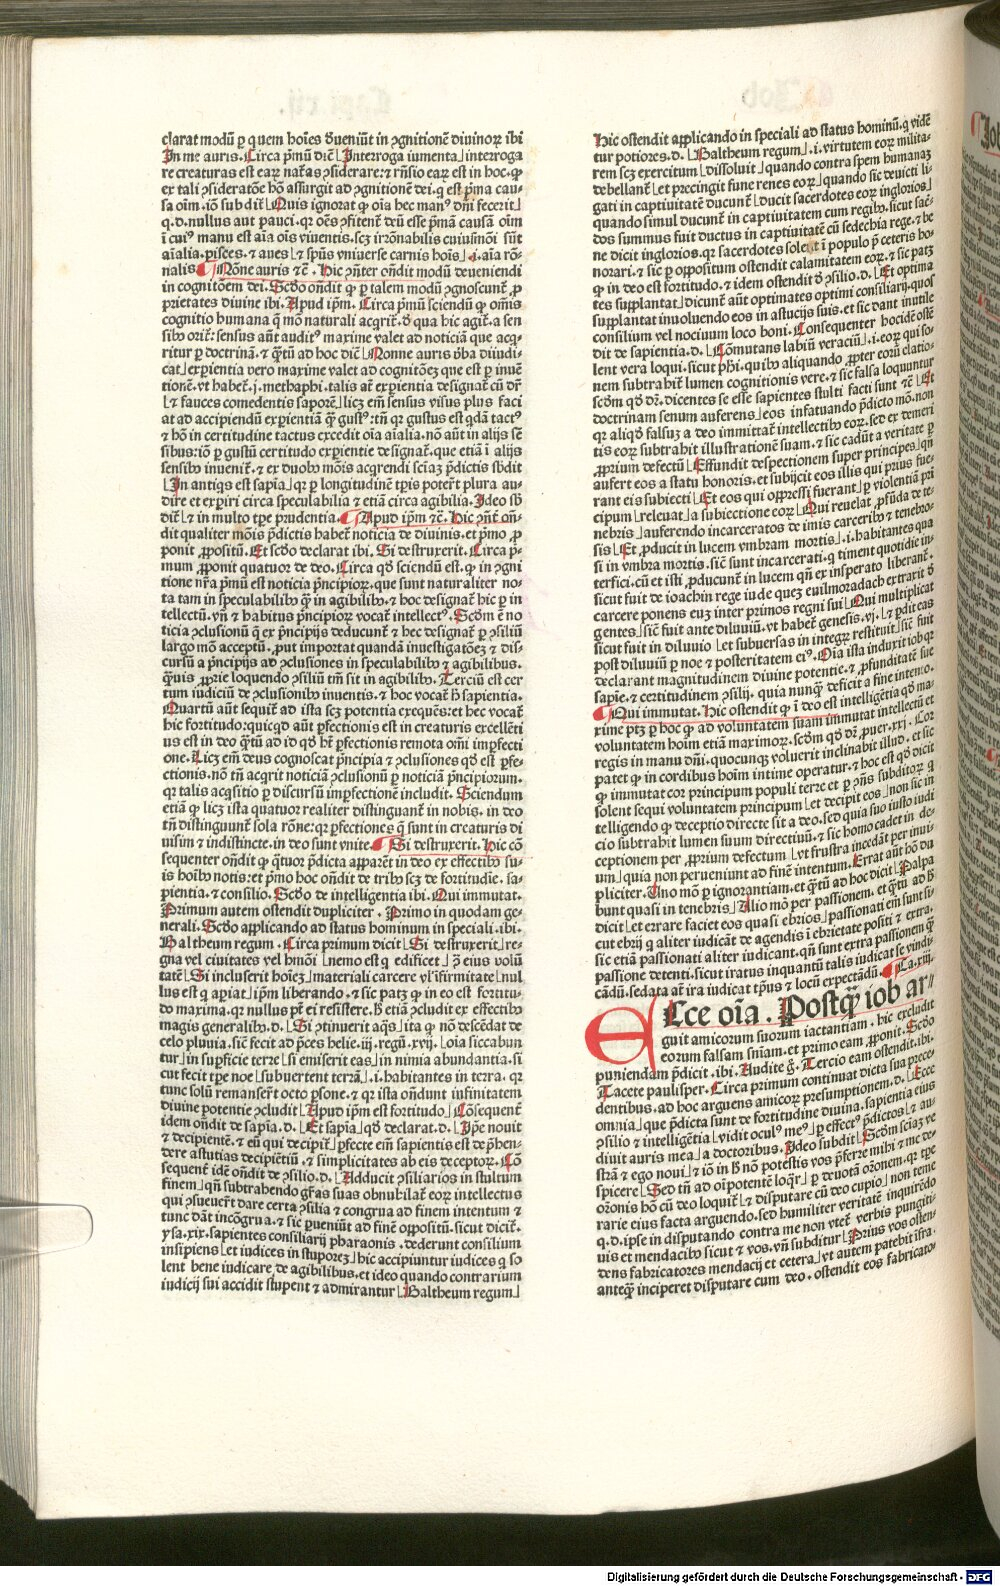 clarat modū ꝑ quem hoīes ꝺueniūt in ꝯgnitionē diuinoꝝ ibi
In me auris. Circa pͥmū dic̄ Interroga iumenta interroga
re creaturas est earꝝ nat̄as ꝯsiderare: ⁊ rn̄sio earꝝ est in hoc. ꝙ
ex tali ꝯsideratōe hō assurgit ad ꝯgnitionē dei. q̄ est pͥma cau
sa oīm. iō sub dit̄ Quis ignorat ꝙ oīa hec manꝰ dn̄i fecerit
q. d. nullus aut pauci. qꝛ oēs ꝯfitent̄ deū esse pͥmā causā oīm
ī cuiꝰ manu est aīa oīs viuentis. scꝫ irrōnabilis cuiusmōi sūt
aīalia. pisces. ⁊ aues ⁊ spūs vniuerse carnis hoīs .i. aīa rō
nalis Nōne auris ⁊c̄. Hic ꝯn̄ter on̄dit modū deueniendi
in cognitōem dei. Scd̄o on̄dit ꝙ ꝑ talem modū ꝯgnoscunt̄ ꝓ
prietates diuine ibi. Apud ipm̄. Circa pͥmū sciendū ꝙ om̄is
cognitio humana q̄ mō naturali acqrit̄. ꝺ qua hic agit̄. a sen
sibꝰ orit̄: sensus aūt auditꝰ maxime valet ad noticiā que acq̄
ritur ꝑ doctrinā. ⁊ q̄ꝫtū ad hoc dic̄ Nonne auris ꝟba diiudi
cat exꝑientia vero maxime valet ad cognitōeꝫ que est ꝑ inuē
tionē. vt habet̄. j. methaphi. talis at̄ exꝑientia designat̄ cū dr̄
⁊ fauces comedentis saporē licꝫ em̄ sensus visus plus faci
at ad accipiendū exꝑientiā q̄ꝫ gustꝰ: tn̄ qꝛ gustus est qdā tactꝰ
⁊ hō in certitudine tactus excedit oīa aīalia. nō aūt in alijs sē
sibus: iō ꝑ gustū certitudo exꝑientie designat̄. que etiā ī alijs
sensibꝰ inuenit̄. ⁊ ex duobꝰ mōis acq̄rendi sciaꝫ pͥdictis sbdit
In antiqs est sapīa qꝛ ꝑ longitudinē tꝑis potert̄ plura au-
dire et exꝑiri circa speculabilia ⁊ etiā circa agibilia. Ideo sb
dic̄ ⁊ in multo tꝑe prudentia. Apud ipm̄ ⁊c̄. Hic ꝯn̄t̄ on̄
dit qualiter mōis pͥdictis habet̄ noticia de diuinis. et pͥmo ꝓ
ponit ꝓpositū. Et scd̄o declarat ibi. Si destruxerit. Circa pͥ-
mum ꝓponit quatuor de deo. Circa qd̄ sciendū est. ꝙ in ꝯgni
tione nr̄a pͥmū est noticia pͥncipioꝝ. que sunt naturaliter no
ta tam in speculabilibꝰ q̄ꝫ in agibilibꝰ. ⁊ hoc designat̄ hic ꝑ in
tellectū. vn̄ ⁊ habitus pͥncipioꝝ vocat̄ intellectꝰ. Scd̄m ē no
ticia ꝯclusionū q̄ ex pͥncipijs deducunt̄ ⁊ hec designat̄ ꝑ ꝯsiliū
largo mō acceptū. ꝓut importat quandā inuestigatōeꝫ ⁊ dis-
cursū a pͥncipijs ad ꝯclusiones in speculabilibꝰ ⁊ agibilibus.
q̄uis ꝓprie loquendo ꝯsiliū tm̄ sit in agibilibꝰ. Terciū est cer
tum iudiciū de ꝯclusionibꝰ inuentis. ⁊ hoc vocat̄ hͥ sapientia.
Quartū aūt sequit̄ ad ista scꝫ potentia exequēs: et hec vocat̄
hic fortitudo: quicqd aūt ꝑfectionis est in creaturis excellēti
us est in deo q̄ꝫtū ad id qd̄ hꝫ ꝑfectionis remota om̄i imꝑfecti
one. Licꝫ em̄ deus cognoscat pͥncipia ⁊ ꝯclusiones qd̄ est ꝑfe-
ctionis. nō tn̄ acqrit noticiā ꝯclusionū ꝑ noticiā pͥncipiorum.
qꝛ talis acq̄sitio ꝑ discursū imꝑfectionē includit. Sciendum
etiā ꝙ licꝫ ista quatuor realiter distinguant̄ in nobis. in deo
tn̄ distinguunt̄ sola rōne: qꝛ ꝑfectiones q̄ sunt in creaturis di
uisim ⁊ indistincte. in deo sunt vnite. Si destruxerit. Hic cō
sequenter on̄dit ꝙ q̄tuor pͥdicta apparēt in deo ex effectibꝰ su-
is hoībꝰ notis: et pͥmo hoc on̄dit de tribꝰ scꝫ de fortitudīe. sa-
pientia. ⁊ consilio. Scd̄o de intelligentia ibi. Qui immutat.
Primum autem ostendit dupliciter. Primo in quodam ge-
nerali. Scd̄o applicando ad status hominum in speciali. ibi.
Baltheum regum. Circa primum dicit Si destruxerit re-
gna vel ciuitates vel hmōi nemo est q edificet ꝯͣ eius volū
tatē Si incluserit hoīeꝫ materiali carcere vl̓ īfirmitate nul
lus est q aꝑiat ipm̄ liberando. ⁊ sic patꝫ ꝙ in eo est fortitu-
do maxima. qꝛ nullus pt̄ ei resistere. hͥ etiā ꝯcludit ex effectibꝰ
magis generalibꝰ. d. Si ꝯtinuerit aqͣs ita ꝙ nō descēdat de
celo pluuia. sic̄ fecit ad pͥces helie. iij. regū. xvij. oīa siccabun
tur in suꝑficie terre si emiserit eas in nimia abundantia. si
cut fecit tꝑe noe subuertent terrā .i. habitantes in terra. qꝛ
tunc solū remanserūt octo ꝑsone. ⁊ qꝛ ista on̄dunt infinitatem
diuine potentie ꝯcludit Apud ipm̄ est fortitudo Cōsequent̄
idem on̄dit de sapīa. d. Et sapīa qd̄ declarat. d. Ipe nouit
⁊ decipientē. ⁊ eū qui decipit̄ ꝑfecte em̄ sapientis est deꝓhen-
dere astutias decipiētiū. ⁊ simplicitates ab eis deceptoꝝ. Cō
sequent̄ idē on̄dit de ꝯsilio. d. Adducit ꝯsiliarios in stultum
finem qn̄ subtrahendo gr̄as suas obnubilat̄ eoꝝ intellectus
qui ꝯsueuer̄t dare certa ꝯsilia ⁊ congrua ad finem intentum ⁊
tunc dāt incōgrua. ⁊ sic ꝑueniūt ad finē oppositū. sicut dicit̄.
ysa. xix. sapientes consiliarij pharaonis. dederunt consilium
insipiens et iudices in stuporeꝫ hic accipiuntur iudices q so
lent bene iudicare de agibilibus. et ideo quando contrarium
iudicij sui accidit stupent ⁊ admirantur Baltheum regum
Hic ostendit applicando in speciali ad status hominū. q vidē
tur potiores. d. Baltheum regum .i. virtutem eoꝝ milita-
rem scꝫ exercitum dissoluit quando contra spem humanaꝫ
debellant̄ et precingit fune renes eoꝝ quando sic deuicti li-
gati in captiuitatē ducunt̄ Ducit sacerdotes eoꝝ inglorios
quando simul ducunt̄ in captiuitatem cum regibꝰ. sicut sac̄-
dos summus fuit ductus in captiuitatē cū sedechia rege. ⁊ be
ne dicit inglorios. qꝛ sacerdotes solent ī populo pͥ ceteris ho-
norari. ⁊ sic ꝑ oppositum ostendit calamitatem eoꝝ. ⁊ sic patꝫ
ꝙ in deo est fortitudo. ⁊ idem ostendit ꝺ ꝯsilio. d. Et optima
tes supplantat dicunt̄ aūt optimates optimi consiliarij. quos
supplantat inuoluendo eos in astucijs suis. et sic dant inutile
consilium vel nociuum loco boni. Consequenter hocidē ostē
dit de sapientia. d. Cōmutans labiū veraciū .i. eoꝝ qui so-
lent vera loqui. sicut phī. quibꝰ aliquando ꝓpter eorū elatio-
nem subtrahit̄ lumen cognitionis vere. ⁊ sic falsa loquuntur
scd̄m qd̄ dr̄. dicentes se esse sapientes stulti facti sunt ⁊c̄ Et
doctrinam senum auferens eos infatuando pͥdicto mō. non
qꝛ aliqd̄ falsuꝫ a deo immittat̄ intellectibꝰ eoꝝ. sed ex demeri
tis eoꝝ subtrahit illustrationē suam. ⁊ sic cadūt a veritate ꝑ
ꝓprium defectū Effundit despectionem super principes qn̄
aufert eos a statu honoris. et subijcit eos illis qui prius fue-
rant eis subiecti Et eos qui oppressi fuerant ꝑ violentiā pri
cipum releuat a subiectione eoꝝ Qui reuelat ꝓfūda de te-
nebris auferendo incarceratos de imis carceribꝰ ⁊ tenebro-
sis Et ꝓducit in lucem vmbram mortis .i. habitantes qua
si in vmbra mortis. sic̄ sunt incarcerati. q timent quotidie in-
terfici. cū et isti ꝓducunt̄ in lucem qn̄ ex insperato liberant̄.
sicut fuit de ioachin rege iude queꝫ euilmoradach extraxit ꝺ
carcere ponens euꝫ inter primos regni sui Qui multiplicat
gentes sic̄ fuit ante diluuiū. vt habet̄ genesis. vj. ⁊ ꝑdit eas
sicut fuit in diluuio et subuersas in integꝝ restituit sic̄ fuit
post diluuiū ꝑ noe ⁊ posteritatem eiꝰ. Oīa ista induxit iob qꝛ
declarant magnitudinem diuine potentie. ⁊ ꝓfunditatē sue
sapīe. ⁊ certitudinem ꝯsilij. quia nunqͣ deficit a fine intento.
Qui immutat. Hic ostendit ꝙ ī deo est intelligētia qd̄ ma-
xime ptꝫ ꝑ hoc ꝙ ad voluntatem suam immutat intellectū et
voluntatem hoīm etiā maximoꝝ. scd̄m qd̄ dr̄. ꝓuer. xxj. Cor
regis in manu dn̄i. quocunqꝫ voluerit inclinabit illud. et sic
patet ꝙ in cordibus hoīm intime operatur. ⁊ hoc est qd̄ dicit
Qui immutat cor principum populi terre et ꝑ ꝯn̄s subditoꝝ q
solent sequi voluntatem principum et decipit eos non sic in
telligendo ꝙ deceptio directe sit a deo. sed quia suo iusto iudi
cio subtrahit lumen suum directiuū. ⁊ sic homo cadet in de-
ceptionem per ꝓprium defectum vt frustra incedāt per inui-
um quia non perueniunt ad finē intentum. Errat aūt hō du
pliciter. Uno mō ꝑ ignorantiam. et q̄ꝫtū ad hoc dicit Palpa
bunt quasi in tenebris Alio mō per passionem. et q̄ꝫtū ad hͥ
dicit et errare faciet eos quasi ebrios passionati em̄ sunt si-
cut ebrij q aliter iudicāt de agendis ī ebrietate positi ⁊ extra.
sic etiā passionati aliter iudicant. qn̄ sunt extra passionem q̄ꝫ
passione detenti. sicut iratus inquantū talis iudicat se vindi-
cādū. sedata at̄ ira iudicat tp̄us ⁊ locū expectādū. Ca. xiij.
ECce oīa. Postq̄ꝫ iob ar-
guit amicorum suorum iactantiam. hic excludit
eorum falsam sn̄iam. et primo eam ꝓponit. Scd̄o
puniendam pͥdicit. ibi. Audite gͦ. Tercio eam ostendit. ibi.
Tacete paulisper. Circa primum continuat dicta sua prece-
dentibus. ad hoc arguens amicoꝝ presumptionem. d. Ecce
omnia que pͥdicta sunt de fortitudine diuina. sapientia eius
ꝯsilio ⁊ intelligētia vidit oculꝰ meꝰ ꝑ effectꝰ pͥdictos ⁊ au-
diuit auris mea a doctoribus. Ideo subdit Scd̄m sciaꝫ ve
strā ⁊ ego noui ⁊ iō in hͥ nō potestis vos pͥferre mihi ⁊ me de-
spicere Sed tn̄ ad oīpotentē loqͣr ꝑ deuotā orōnem. qꝛ tꝑe
orōnis hō cū deo loquit̄ ⁊ disputare cū deo cupio non teme
rarie eius facta arguendo. sed humiliter veritatē inquirēdo
q. d. ipse in disputando contra me non vtet̄ verbis pungiti-
uis et mendacibꝰ sicut ⁊ vos. vn̄ subditur Prius vos osten-
dens fabricatores mendacij et cetera vt autem patebit īfra.
anteq̄ꝫ inciperet disputare cum deo. ostendit eos fabricato-
Digitalisierung gefördert durch die Deutsche Forschungsgemeinschaft - DFG